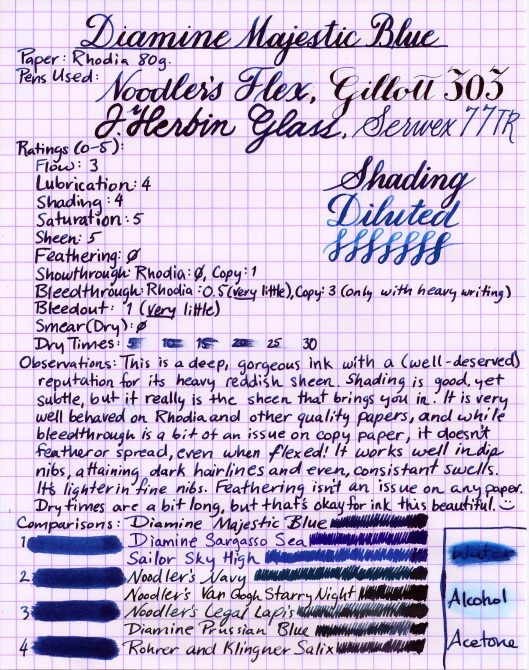 Diamine Majestic Blue
Paper: Rhodia 80g.
Pens Used:
Noodler's Flex, Gillott 303
J. Herbin Glass, Serwex 77TR
Ratings (0-5):
Flow: 3
Lubrication: 4
Shading: 4
Saturation: 5
Sheen: 5
Feathering: Ø
Showthrough: Rhodia: Ø, Copy: 1
Bleedthrough: Rhodia: 0.5 (very little), Copy: 3 (only with heavy writing)
Bleedout: 1 (very little)
Smear (Dry): Ø
Dry Times: 5 10 15 20 25 30
Shading
Diluted
Observations: This is a deep, gorgeous ink with a (well-deserved)
reputation for its heavy reddish sheen. Shading is good, yet
subtle, but it really is the sheen that brings you in! It is very
well behaved on Rhodia and other quality papers, and while
bleedthrough is a bit of an issue on copy paper, it doesn't
feather or spread, even when flexed! It works well in dip
nibs, attaining dark hairlines and even, consistant swells.
It's lighter in fine nibs. Feathering isn't an issue on any paper.
Dry times are a bit long, but that's okay for ink this beautiful. :)
Comparisons: Diamine Majestic Blue
1 Diamine Sargasso Sea
Sailor Sky High
2 Noodler's Navy
Noodler's Van Gogh Starry Night
3 Noodler's Legal Lapis
Diamine Prussian Blue
4 Rohrer and Klingner Salix
Water
Alcohol
Acetone